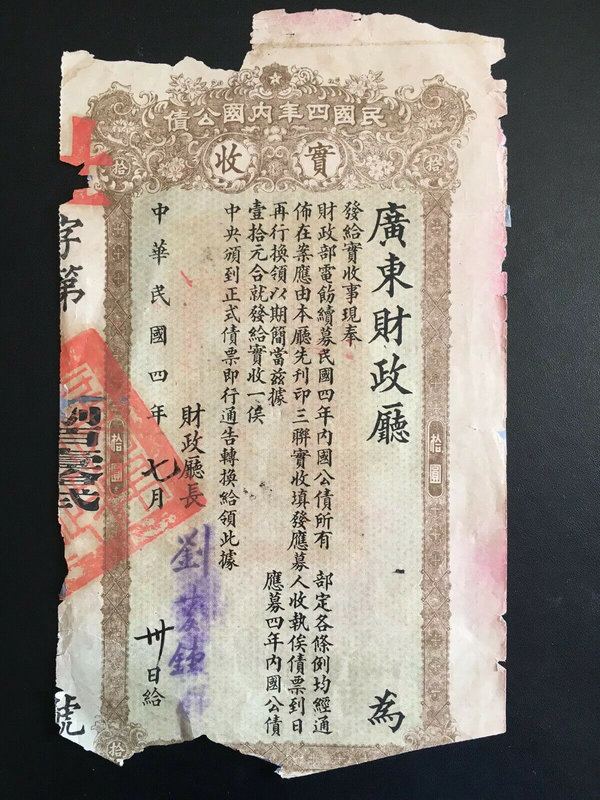 民國四年內國公債
實收
拾
拾
廣東財政廳 為
發給實收事現奉
財政部電飭續募民國四年內國公債所有 部定各條例均經通
佈在案應由本廳先刊印三聯實收填發應募人收執俟債票到日
再行換領以期簡當茲據 應募四年內國公債
壹拾元合就發給實收一俟
中央頒到正式債票即行通告轉換給領此據
財政廳長 劉
中華民國四年七月卅日給
字第 號
拾圓
拾圓
拾